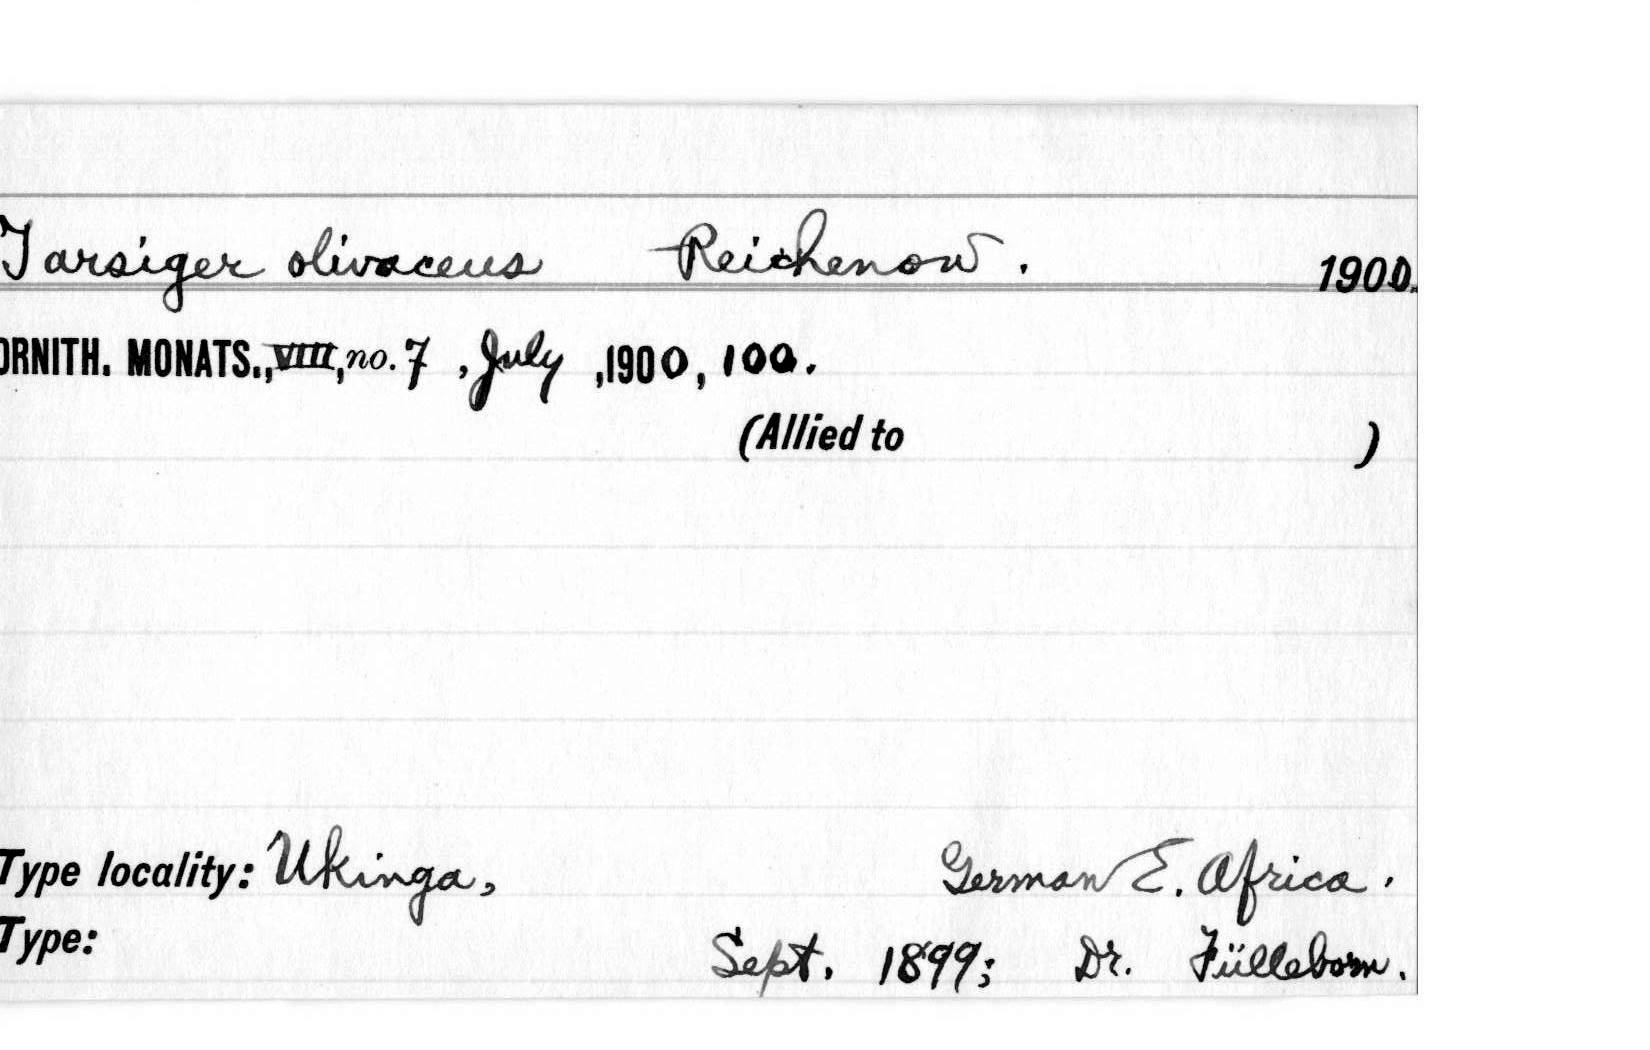 Tarsiger olivaceus Reichenow. 1900.
ORNITH. MONATS., VIII, no. 7, July, 1900, 100.
(Allied to )
Type locality: Ukinga, German E. Africa.
Type: Sept. 1899; Dr. Fülleborn.